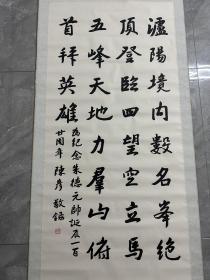 瀘陽境內數名峯絕
頂登臨四望空立馬
五峰天地力羣山俯
首拜英雄
為紀念朱德元帥誕辰一百
廿周年 陳彥 敬錄